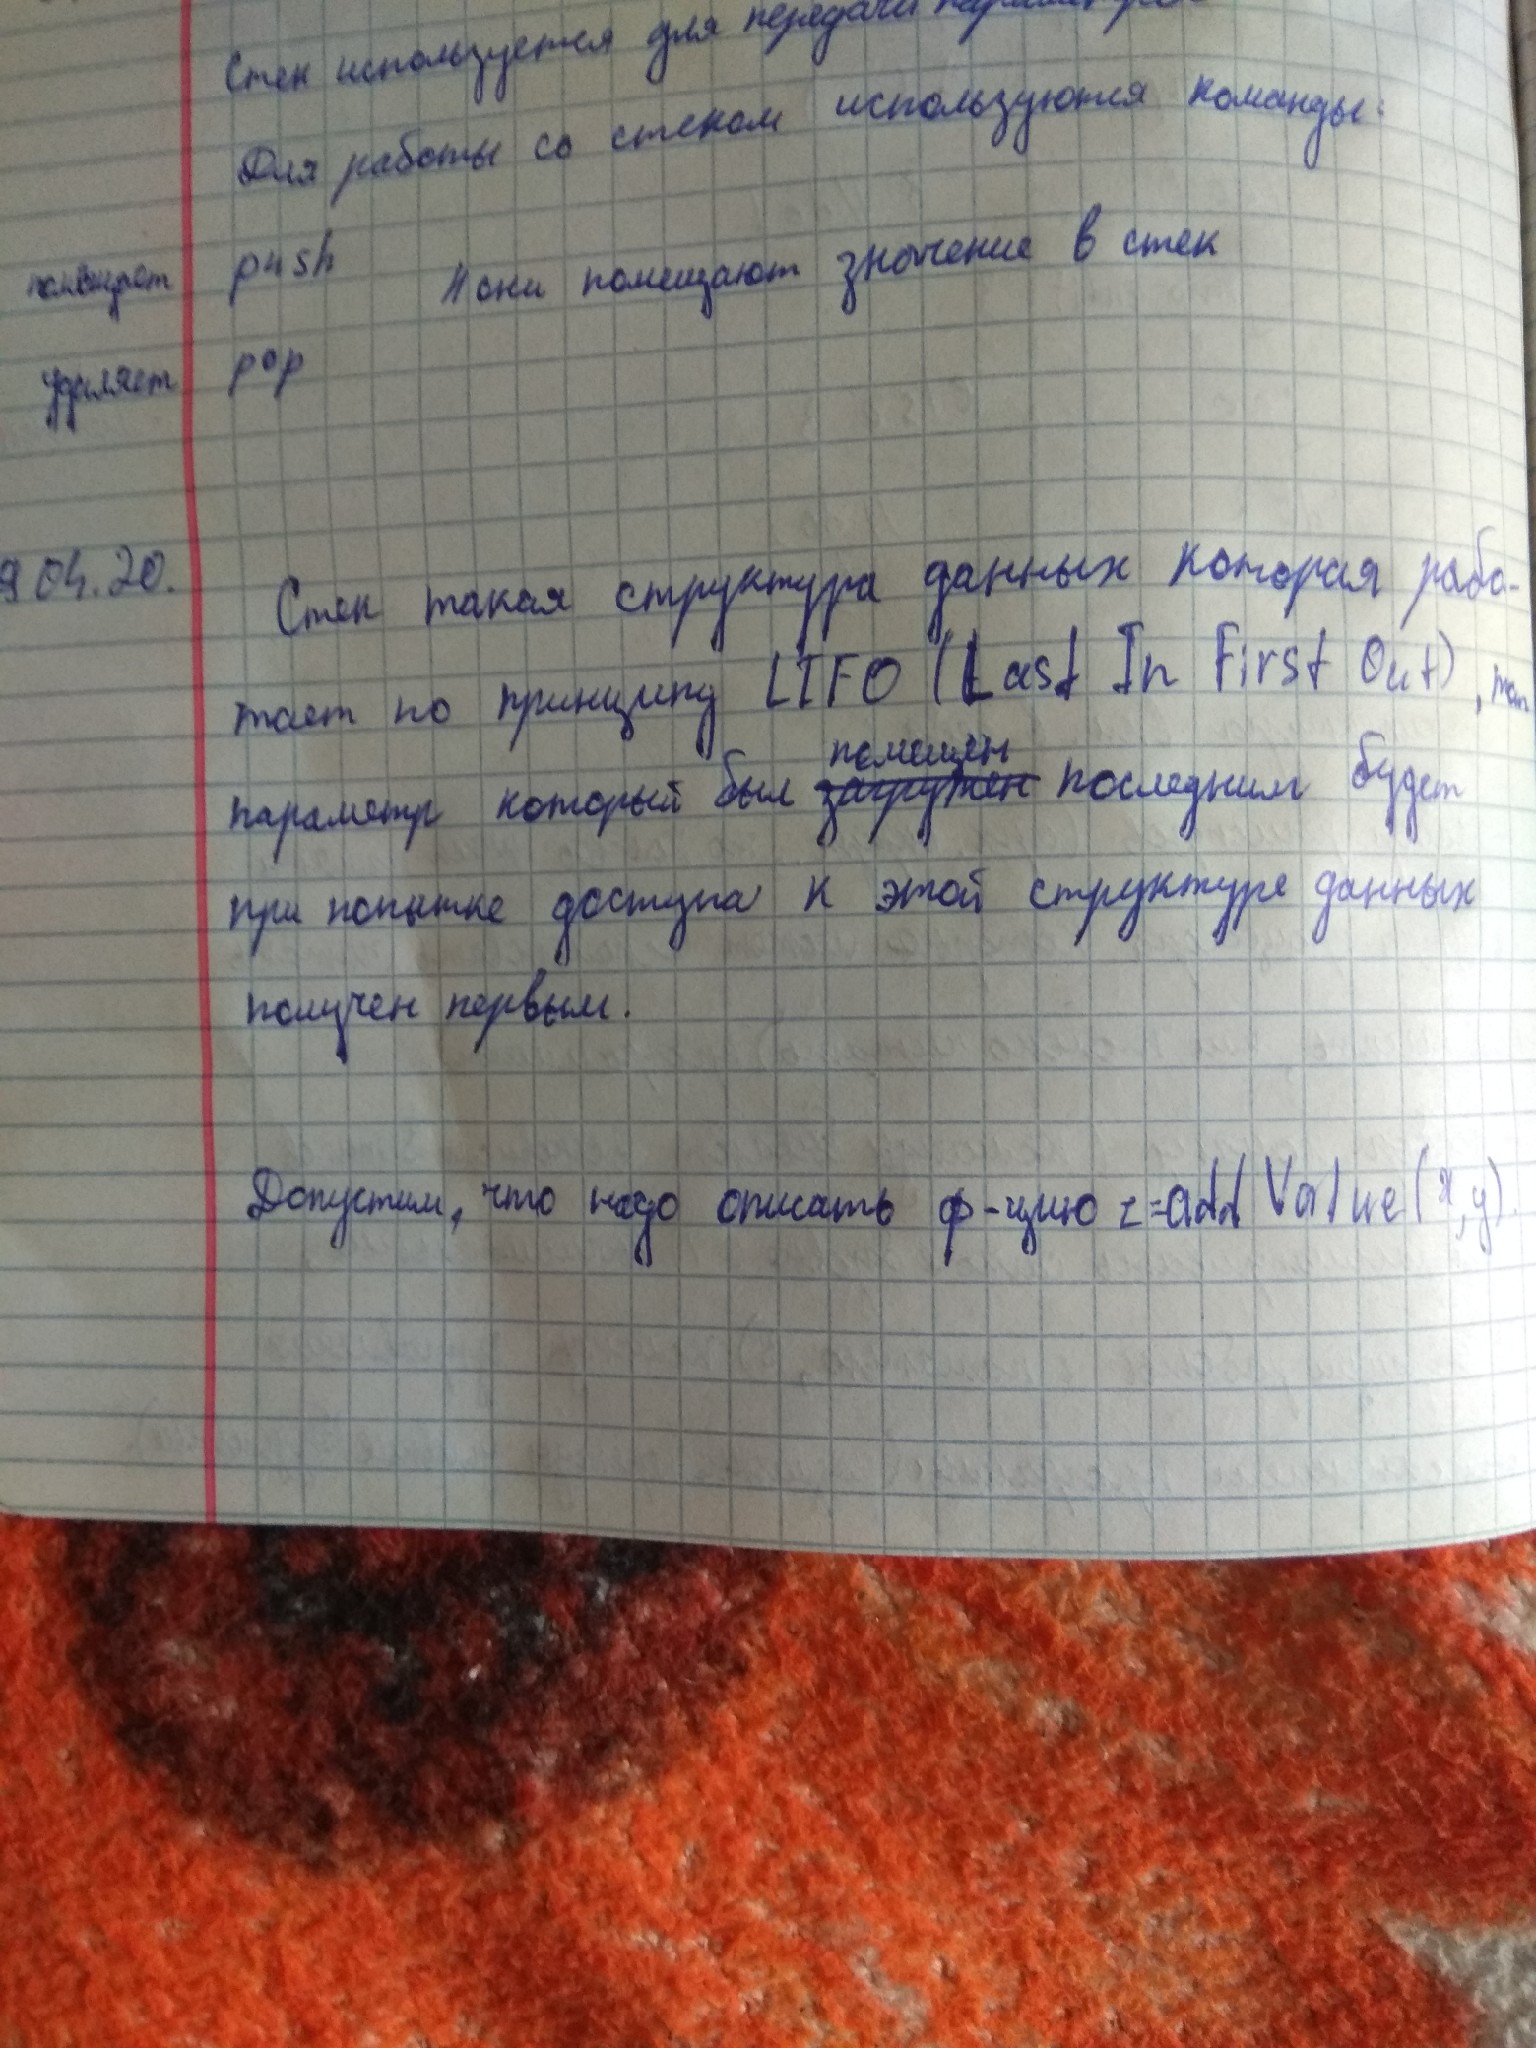 Стек используется для передачи параметров
Для работы со стеком используются команды:
помещает push // они помещают значение в стек
удаляет pop
9.04.20. Стек такая структура данных которая рабо-
тает по принципу LIFO (Last In First Out),
помещен
параметр который был загружен последним будет
при попытке доступа к этой структуре данных
получен первым.
Допустим, что надо описать ф-цию z=addValue(x,y).